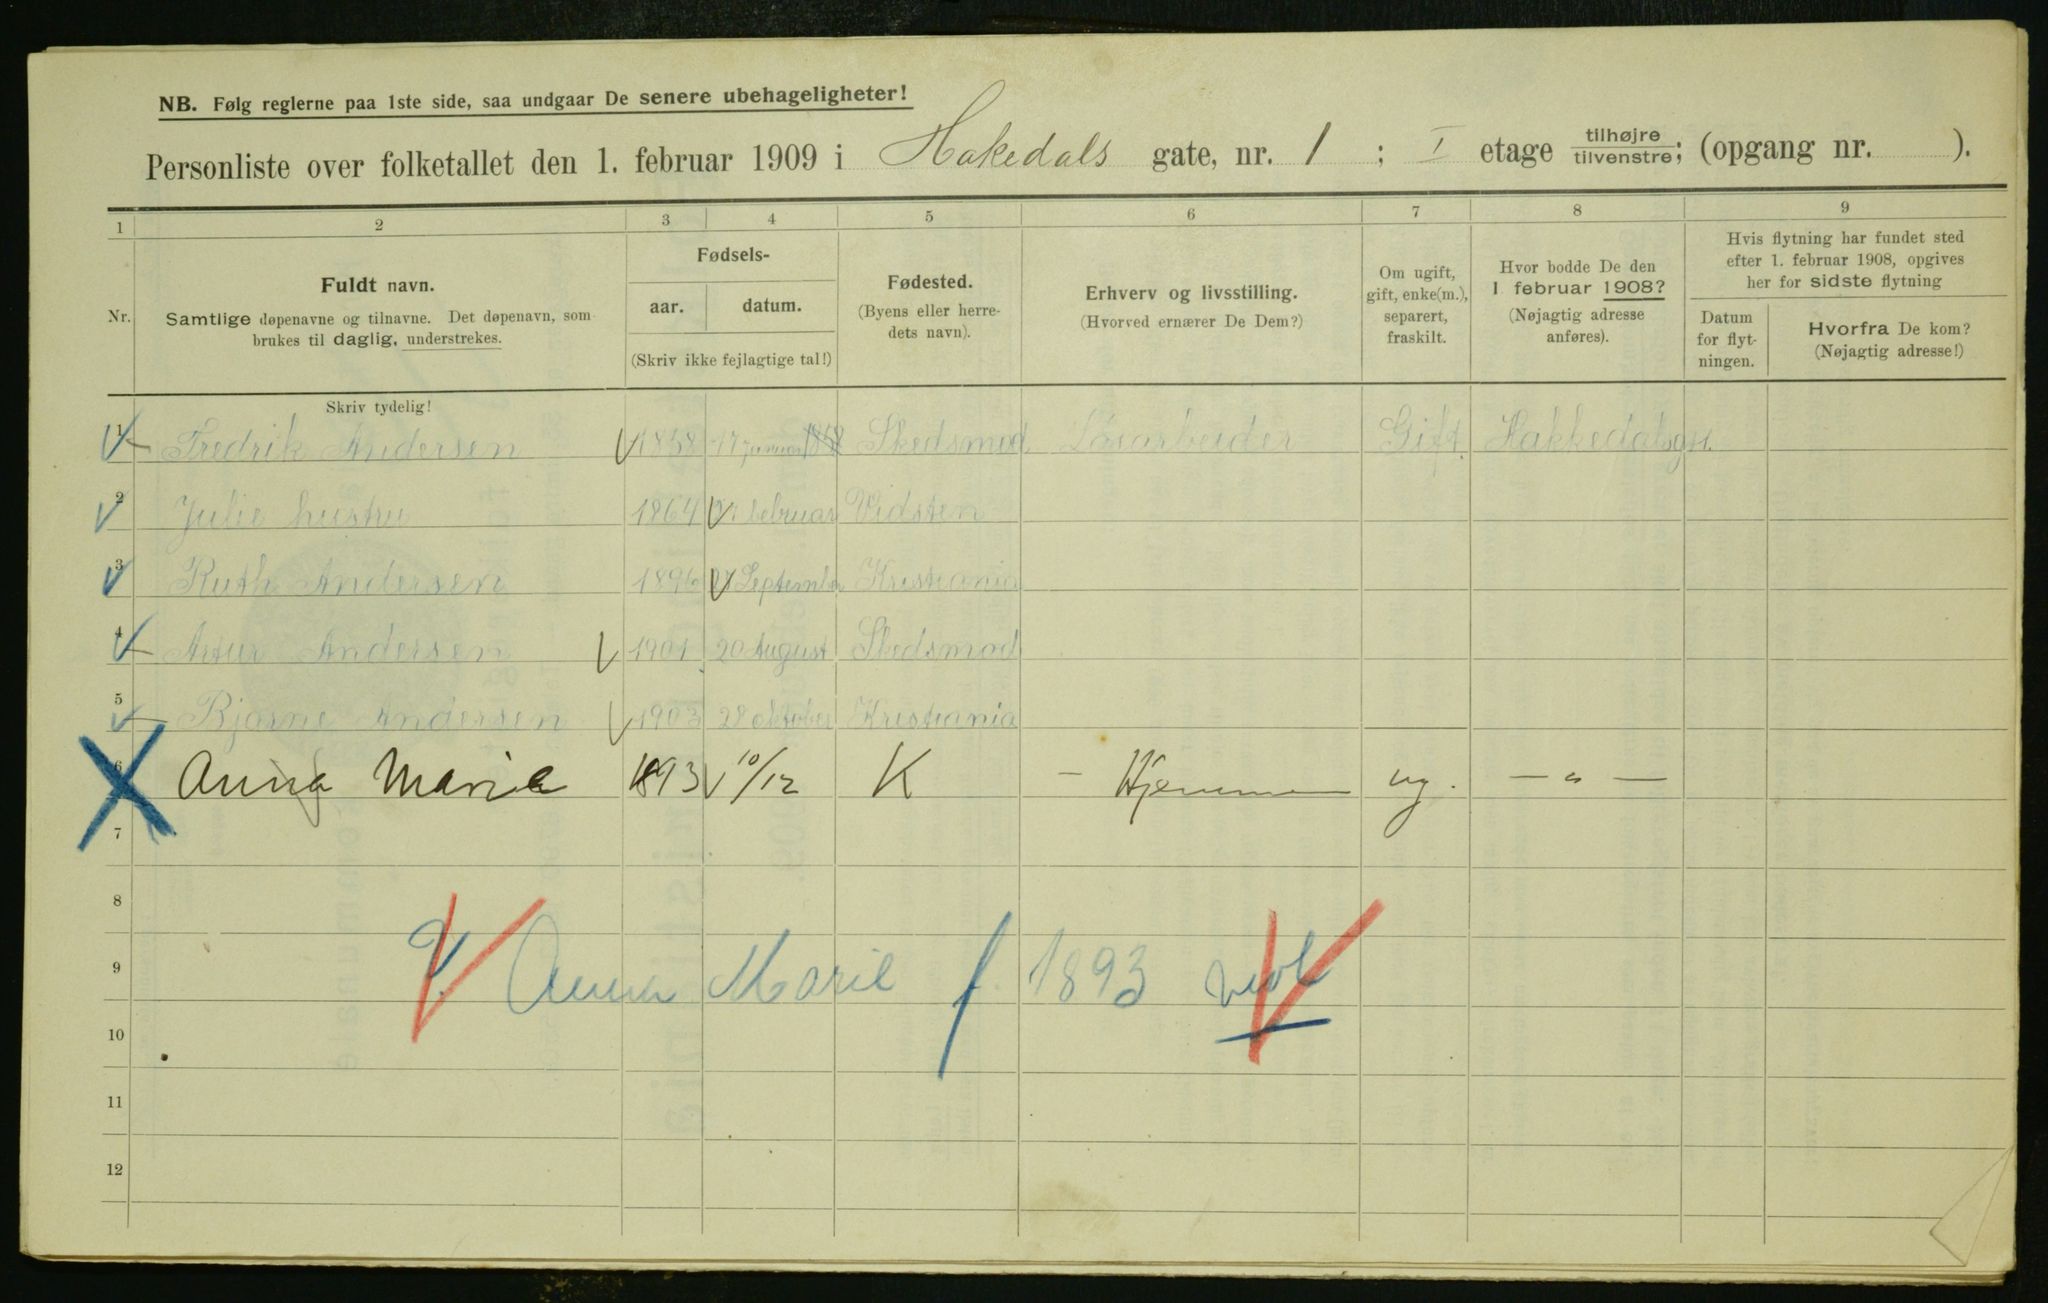 NB. Følg reglerne paa 1ste side, saa undgaar De senere ubehageligheter!
Personliste over folketallet den 1. februar 1909 i Hakedals gate, nr. 1 ; I etage tilhøjre/tilvenstre; (opgang nr. ).
1 2 3 4 5 6 7 8 9
Nr.
Fuldt navn.
Samtlige døpenavne og tilnavne. Det døpenavn, som
brukes til daglig, understrekes.
Fødsels-
aar. datum.
(Skriv ikke fejlagtige tal!)
Fødested.
(Byens eller herre-
dets navn).
Erhverv og livsstilling.
(Hvorved ernærer De Dem?)
Om ugift,
gift, enke(m.),
separert,
fraskilt.
Hvor bodde De den
1 februar 1908?
(Nøjagtig adresse
anføres).
Hvis flytning har fundet sted
efter 1. februar 1908, opgives
her for sidste flytning
Datum
for flyt-
ningen.
Hvorfra De kom?
(Nøjagtig adresse!)
Skriv tydelig!
1 Fredrik Andersen 1858 17 januar 1858 Skedsmed Løsarbeider Gift Hakkedalsgt.
2 Julie hustru 1864 februar Vidsten
3 Ruth Andersen 1896 September Kristiania
4 Artur Andersen 1901 20 August Skedsmod
5 Bjarne Andersen 1903 28 oktober Kristiania
6 Anna Marie 1893 10/12 K - Hjemme ug. — " —
7
8
9 Anna Marie f. 1893
10
11
12